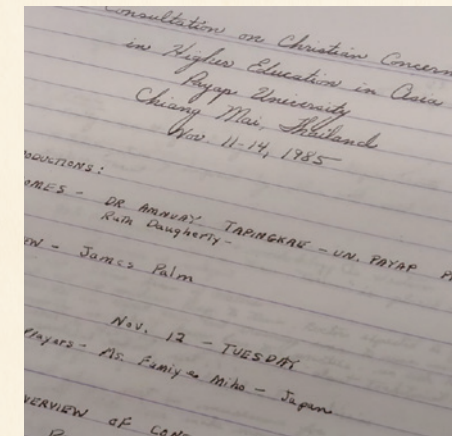 Consultation on Christian Concern
in Higher Education in Asia
Payap University
Chiang Mai, Thailand
Nov. 11-14, 1985
ODUCTIONS:
OMES - DR AMNUAY TAPINGKAE - UN. PAYAP P
Ruth Daugherty-
EW - James Palm
Nov. 12 - TUESDAY
Prayers - Ms. Miho - Japan
VERVIEW OF CON